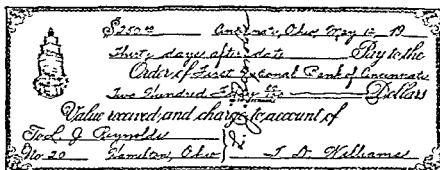 $250.00 Cincinnati, Ohio, May 12, 19
Thirty days after date Pay to the
Order of First National Bank of Cincinnati
Two Hundred Dollars
Value received and charge to account of
To L. J. Reynolds
No. 20 Hamilton, Ohio J. D. Williams